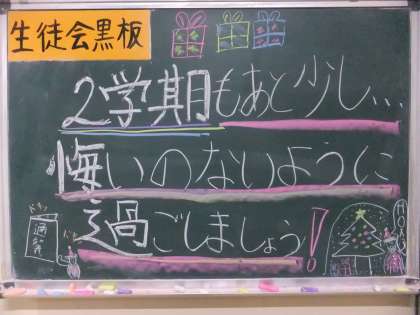 生徒会黒板
2学期もあと少し...
悔いのないように
過ごしましょう!